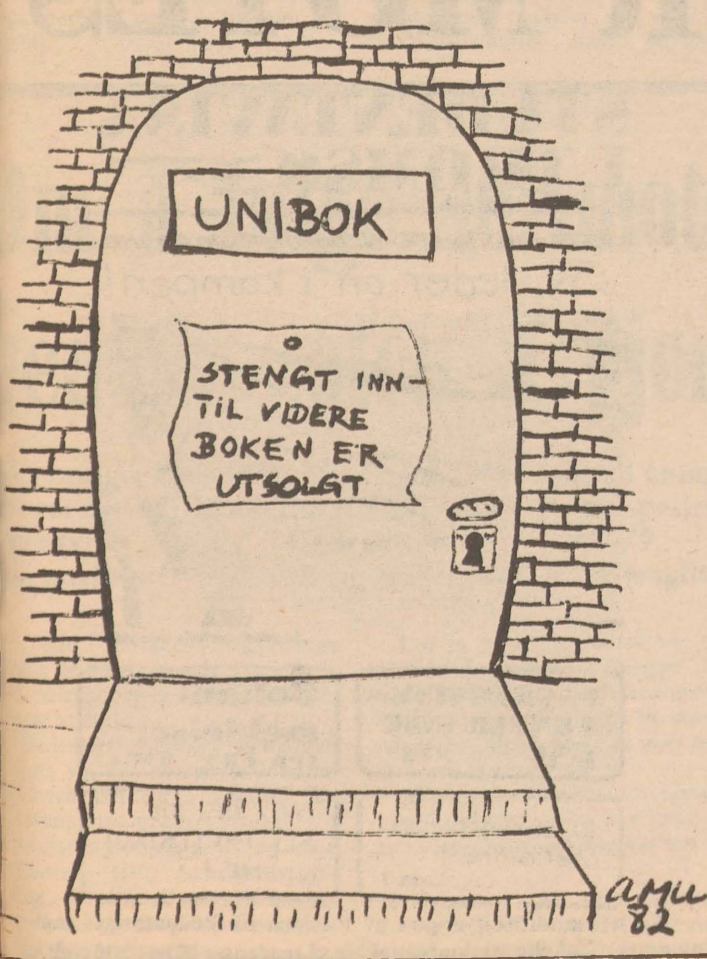 UNIBOK
STENGT INN-
TIL VIDERE
BOKEN ER
UTSOLGT
AMU
82